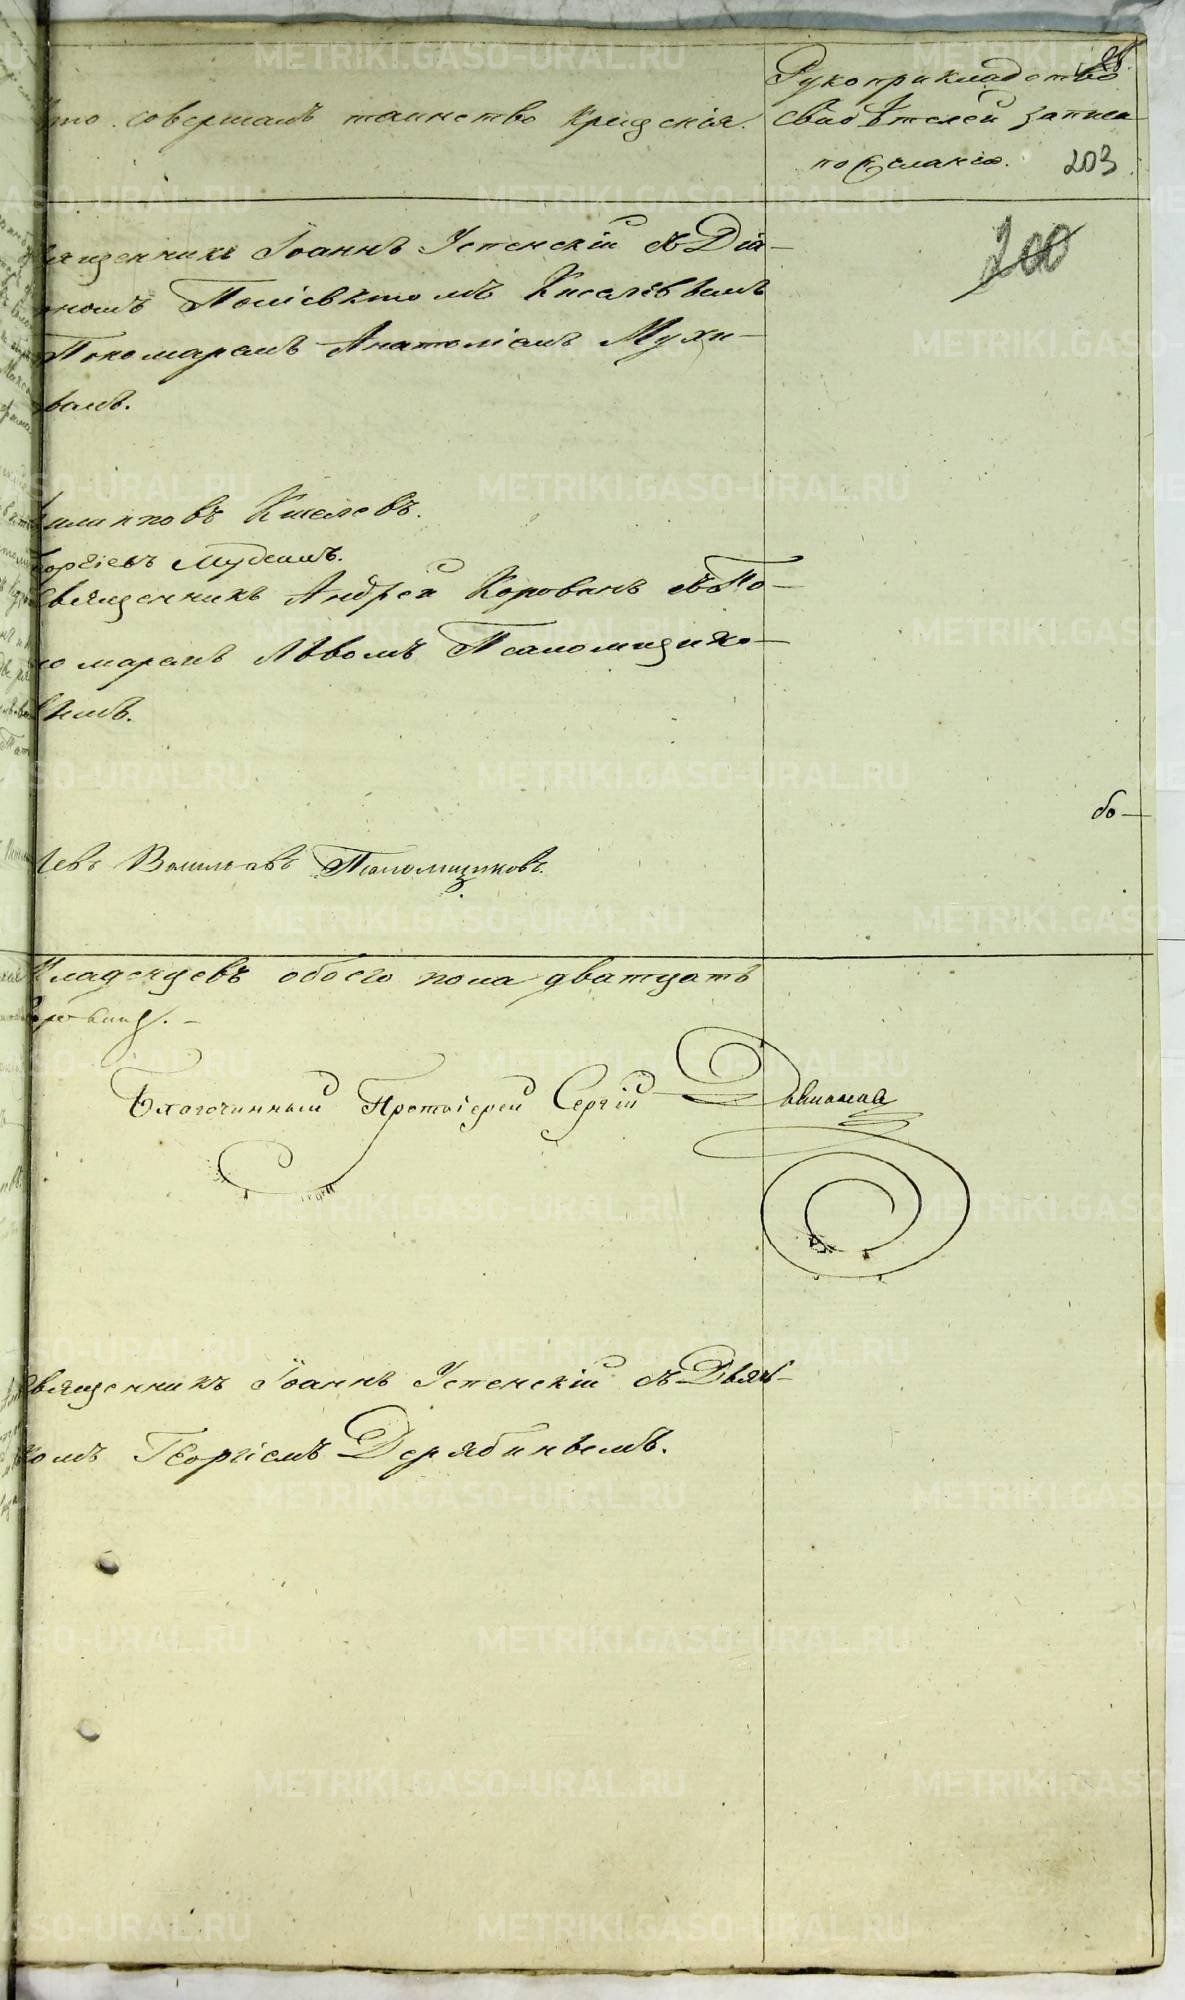 Кто совершалъ таинство крещенія.
Рукоприкладство
свидѣтелей записи
по желанію.
203
200
Священникъ Іоаннъ Успенскій съ Діа-
кономъ Поліевктомъ Киселёвымъ
Пономаремъ Анатоліемъ Мухи-
нымъ.
Киселевъ.
Священникъ Андрей Коровинъ съ По-
номаремъ Львомъ Псаломщико-
вымъ.
бо-
Левъ Васильевъ Псаломщиковъ.
младенцевъ обоего пола дватцать
Благочинный Протоіерей Сергій
Священникъ Іоаннъ Успенскій съ Дьяч-
комъ Георгіемъ Дерябинымъ.
METRIKI.GASO-URAL.RU